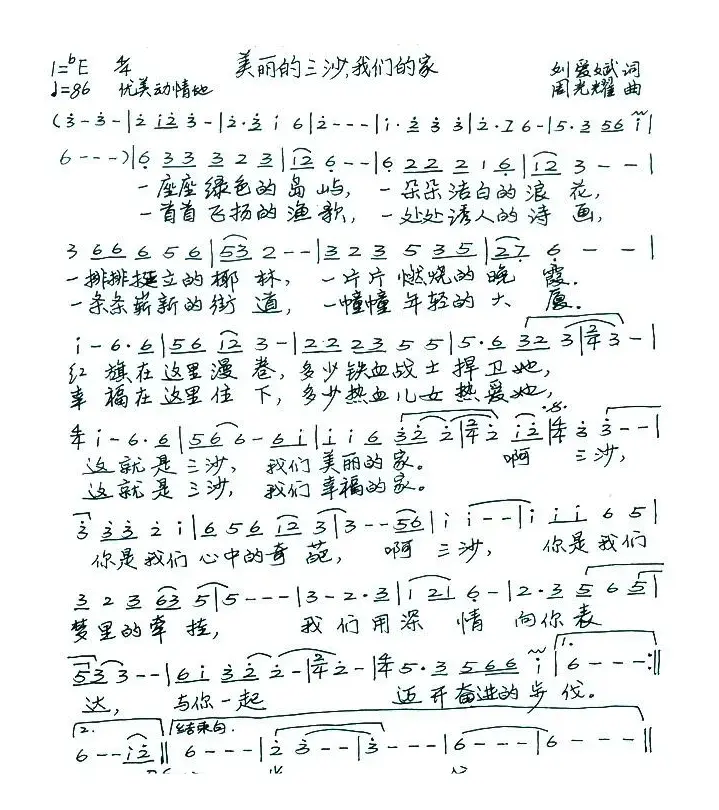 1=ᵇE 4/4 美丽的三沙,我们的家 刘爱斌 词
♩=86 优美动情地 周光耀 曲
(3̇ - 3̇ - | 2̇ i 2̇ 3̇ - | 2̇ · 3̇ i 6 | 2̇ - - - | i · 2̇ 3̇ 3̇ | 2̇ · i 6 - | 5 · 3 5 6 i |
6 - - - ) | 6̣ 3 3 3 2 3 | 1 2 6̣ - - | 6̣ 2 2 2 1 6̣ | 1 2 3 - - |
一座座绿色的岛屿, 一朵朵洁白的浪花,
一首首飞扬的渔歌, 一处处诱人的诗画,
3 6 6 6 5 6 | 5 3 2 - - | 3 2 3 5 3 5 | 2 7̣ 6̣ - - |
一排排挺立的椰林, 一片片燃烧的晚霞.
一条条崭新的街道, 一幢幢年轻的大厦.
i - 6 · 6 | 5 6 i 2̇ 3 - | 2 2 2 3 5 5 | 5 · 6 3 2 3 | 2/4 3 - |
红旗在这里漫卷, 多少铁血战士捍卫她,
幸福在这里住下, 多少热血儿女热爱她,
4/4 i - 6 · 6 | 5 6 6 - 6 i | i i 6 3̇ 2̇ 2̇ | 2/4 2̇ i 2̇ | 4/4 3̇ 3̇ - - |
这就是三沙, 我们美丽的家. 啊 三沙,
这就是三沙, 我们幸福的家.
3̇ 3̇ 3̇ 2̇ i | 6 5 6 i 2̇ 3 | 3 - - 5 6 | i i - - | i i i 6 5 |
你是我们心中的奇葩, 啊 三沙, 你是我们
3 2 3 6 3 5 | 5 - - - | 3 - 2 · 3 | 1 2 1 6̣ - | 2 · 3 5 6 5 |
梦里的牵挂, 我们用深情 向你表
5 3 3 - - | 6 i 3̇ 2̇ 2̇ - | 2/4 2̇ - | 4/4 5 · 3 5 6 6 i | 1. 6 - - - :||
达, 与你一起 迈开奋进的步伐.
2. 6 - - i 2̇ || 结束句. 6 - - - | 2̇ 3̇ - - | 3̇ - - - | 6 - - - | 6 - - - ||